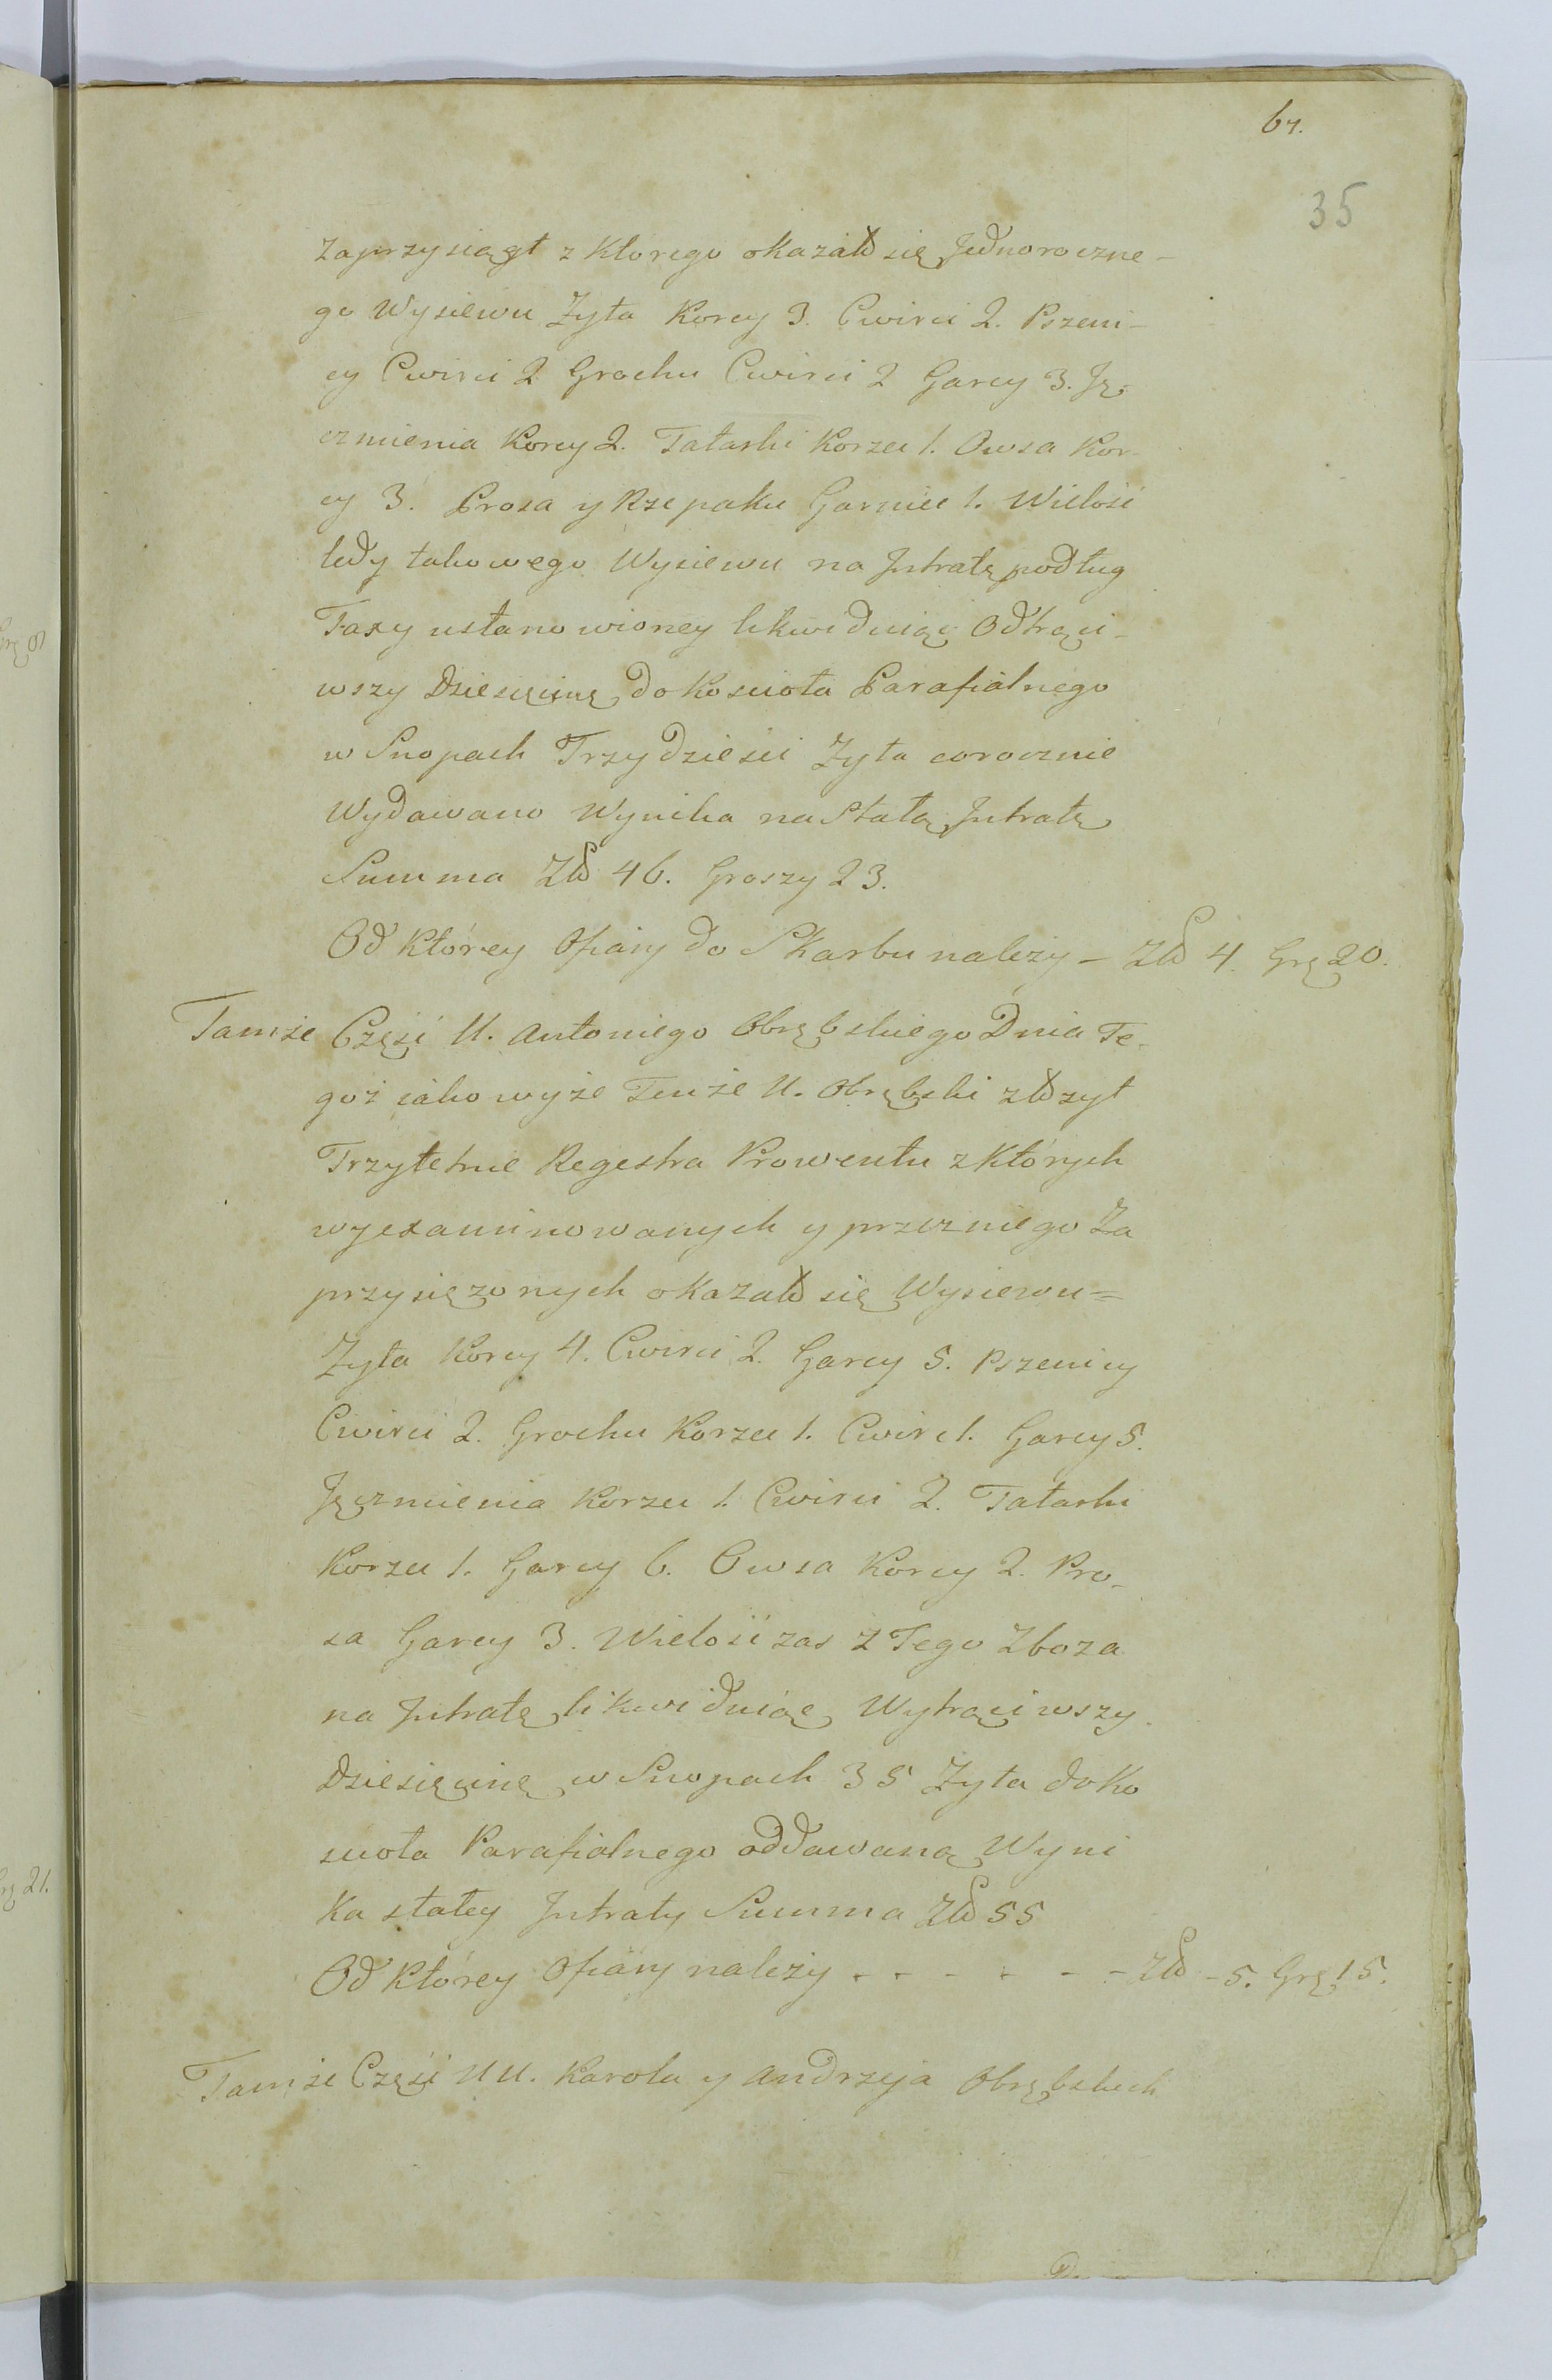 67.
35
Zaprzysiągł z Ktorego okazało się Jednoroczne-
go Wysiewu Zyta Korcy 3. Cwirci 2. Pszeni-
cy Cwirci 2 Grochu Cwirci 2 Garcy 3. Ję-
czmienia Korcy 2. Tatarki Korzec 1. Owsa Kor-
cy 3. Prosa y Rzepaku Garniec 1. Wielość
tedy takowego Wysiewu na Jntratę podług
Taxy ustanowioney likwiduiąc Odtrąci-
wszy Dziesięcinę do Koscioła Parafialnego
w Snopach Trzydziesci Zyta corocznie
Wydawano Wynika na Stałą Jntratę
Summa Zło 46. Groszy 23.
Od Którey Ofiary do Skarbu należy - Zło 4. Grę 20.
Tamże Część U. Antoniego Obrębskiego Dnia Te-
goż iako wyże Tenże U. Obrębski złożył
Trzyletnie Regestra Prowentu z Których
wyexaminowanych y przez niego Za
przysiężonych okazało się Wysiewu=
Zyta Korcy 4. Cwirci 2. Garcy 5. Pszenicy
Cwirci 2. Grochu Korzec 1. Cwirc 1. Garcy 5.
Jęczmienia Korzec 1. Cwirci 2. Tatarki
Korzec 1. Garcy 6. Owsa Korcy 2. Pro-
sa Garcy 3. Wielość zas z Tego Zboza
na Jntratę likwiduiąc Wytrąciwszy
Dziesięcinę w Snopach 35 Zyta do Ko
scioła Parafialnego oddawaną Wyni
Ka stałey Jntraty Summa Zło 55
Od Którey Ofiary należy - - - - - - Zło - 5. Grę 15.
Tamże Część UU. Karola y Andrzeja Obrębskich